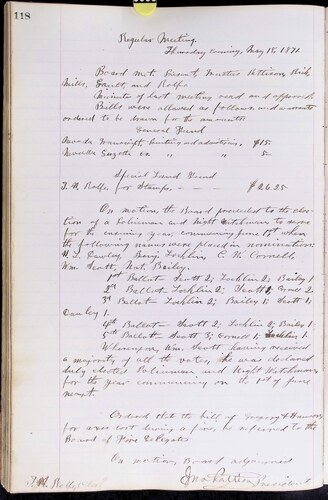 118
Regular Meeting.
Thursday evening, May 18, 1871.
Board met. Present, Trustees Pattison, Rich,
Mills, Gault, and Rolfe
Minutes of last meeting read and approved.
Bills were allowed as follows, and warrants
ordered to be drawn for the amounts:
General Fund
Nevada Transcript, printing advertising, $15.
Nevada Gazette do " " 5-
Special Fund
T. H. Rolfe, for Stamps, - - - $26.25
On motion the Board proceeded to the elec-
tion of a Policeman and Night Watchman to serve
for the ensuing year, commencing June 1st when
the following names were placed in nomination:
H. L. Cawley, Benj Locklin, C. W. Cornell
Wm Scott, Nat. Bailey.
1st Ballot - Scott 2; Locklin 2; Bailey 1
2nd Ballot - Locklin 2; Scott 2; Cornell 1.
3d Ballot - Locklin 2; Bailey 1; Scott 1;
Cawley 1.
4th Ballot - Scott 2; Locklin 2; Bailey 1.
5th Ballot - Scott 3; Cornell 1; Locklin 1.
Whereupon, Wm. Scott, having received
a majority of all the votes, he was declared
duly elected Policeman and Night Watchman
for the year commencing on the 1st of June
next.
Ordered that the bill of
for over cost during a fire, be referred to the
Board of Fire Delegates
On motion, Board adjourned
T. H. Rolfe, Clerk Jno Pattison President